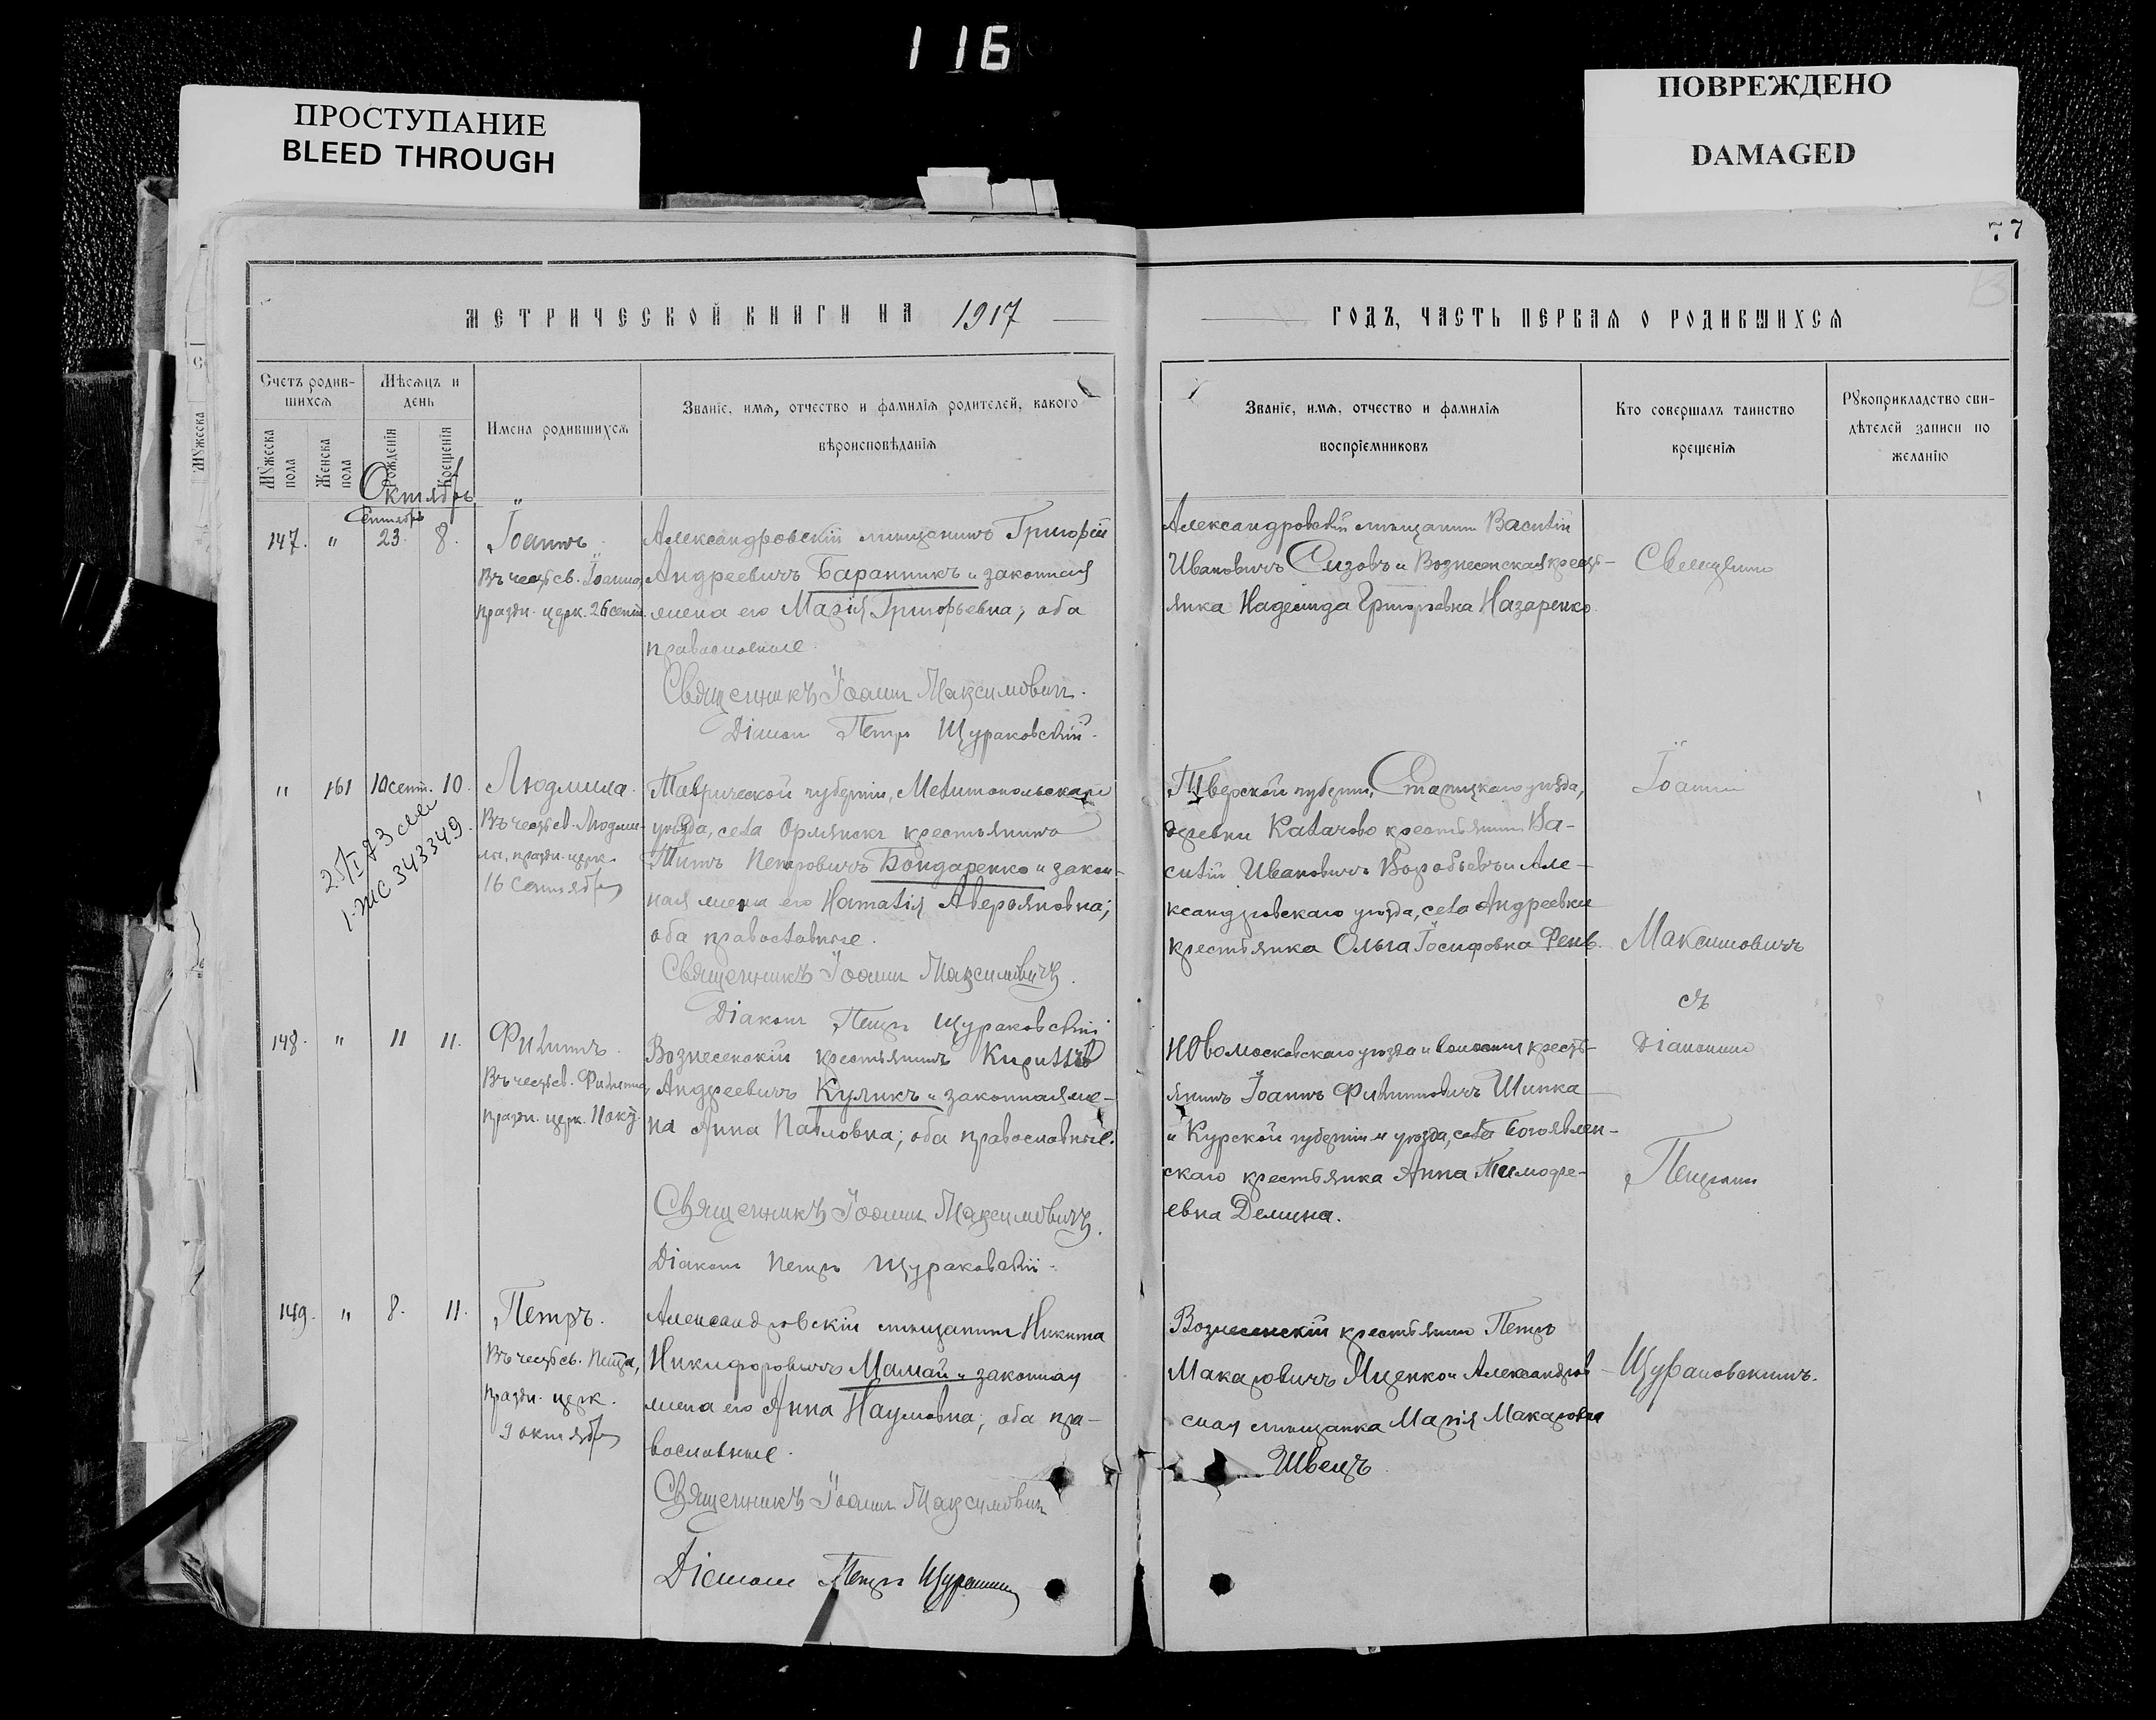 116
ПРОСТУПАНИЕ
BLEED THROUGH
ПОВРЕЖДЕНО
DAMAGED
77
МЕТРИЧЕСКОЙ КНИГИ НА 1917
ГОДЪ, ЧАСТЬ ПЕРВАЯ О РОДИВШИХСЯ
Счетъ родив-
шихся
Мужеска пола
Женска пола
Мѣсяцъ и
день
Рожденія
Крещенія
Имена родившихся
Званіе, имя, отчество и фамилія родителей, какого
вѣроисповѣданія
Званіе, имя, отчество и фамилія
воспріемниковъ
Кто совершалъ таинство
крещенія
Рукоприкладство сви-
дѣтелей записи по
желанію
Октябрь
Сентябрь
147. " 23. 8.
Іоаннъ.
Въ честь св. Іоанна,
праздн. церк. 26 сент.
Александровскій мѣщанинъ Григорій
Андреевичъ Баранникъ и законная
жена его Марія Григорьевна; оба
православные.
Священникъ Іоаннъ Максимович.
Діакон Петр Щураковскій.
Александровскій мѣщанинъ Василій
Ивановичъ Сизовъ и Вознесенская кресть-
янка Надежда Григорьевна Назаренко.
" 161 10 сент. 10.
Людмила.
Въ честь св. Людми-
лы, праздн. церк.
16 Сентября
25/I 73
1-ЖС 343349.
Таврической губерніи, Мелитопольскаго
уѣзда, села Орлянскъ крестьянинъ
Титъ Петровичъ Бондаренко и закон-
ная жена его Наталія Аверьяновна;
оба православные.
Священникъ Іоаннъ Максимовичъ.
Діаконъ Петръ Щураковскій
Тверской губерніи, Старицкаго уѣзда,
деревни Калачово крестьянинъ Ва-
силій Ивановичъ Воробьевъ и Але-
ксандровскаго уѣзда, села Андреевки
крестьянка Ольга Іосифовна
148. " 11 11.
Филиппъ.
Въ честь св. Филиппа,
праздн. церк. 11 окт.
Вознесенскій крестьянинъ Кириллъ
Андреевичъ Куликъ и законная же-
на Анна Павловна; оба православные.
Священникъ Іоаннъ Максимовичъ.
Діаконъ Петръ Щураковскій.
Новомосковскаго уѣзда и волости кресть-
янинъ Іоаннъ Филипповичъ Шипка
и Курской губерніи и уѣзда, села Богоявлен-
скаго крестьянка Анна Тимофе-
евна Демина.
149. " 8. 11.
Петръ.
Въ честь св. Петра,
праздн. церк.
9 октября
Александровскій мѣщанинъ Никита
Никифоровичъ Мамай и законная
жена его Анна Наумовна; оба пра-
вославные.
Священникъ Іоаннъ Максимович
Діакон Петръ
Вознесенскій крестьянин Петръ
Макаровичъ Яценко и Александров-
ская мѣщанка Марія Макаровна
Швецъ
Священникъ
Іоаннъ
Максимовичъ
съ
Діакономъ
Петромъ
Щураковскимъ.